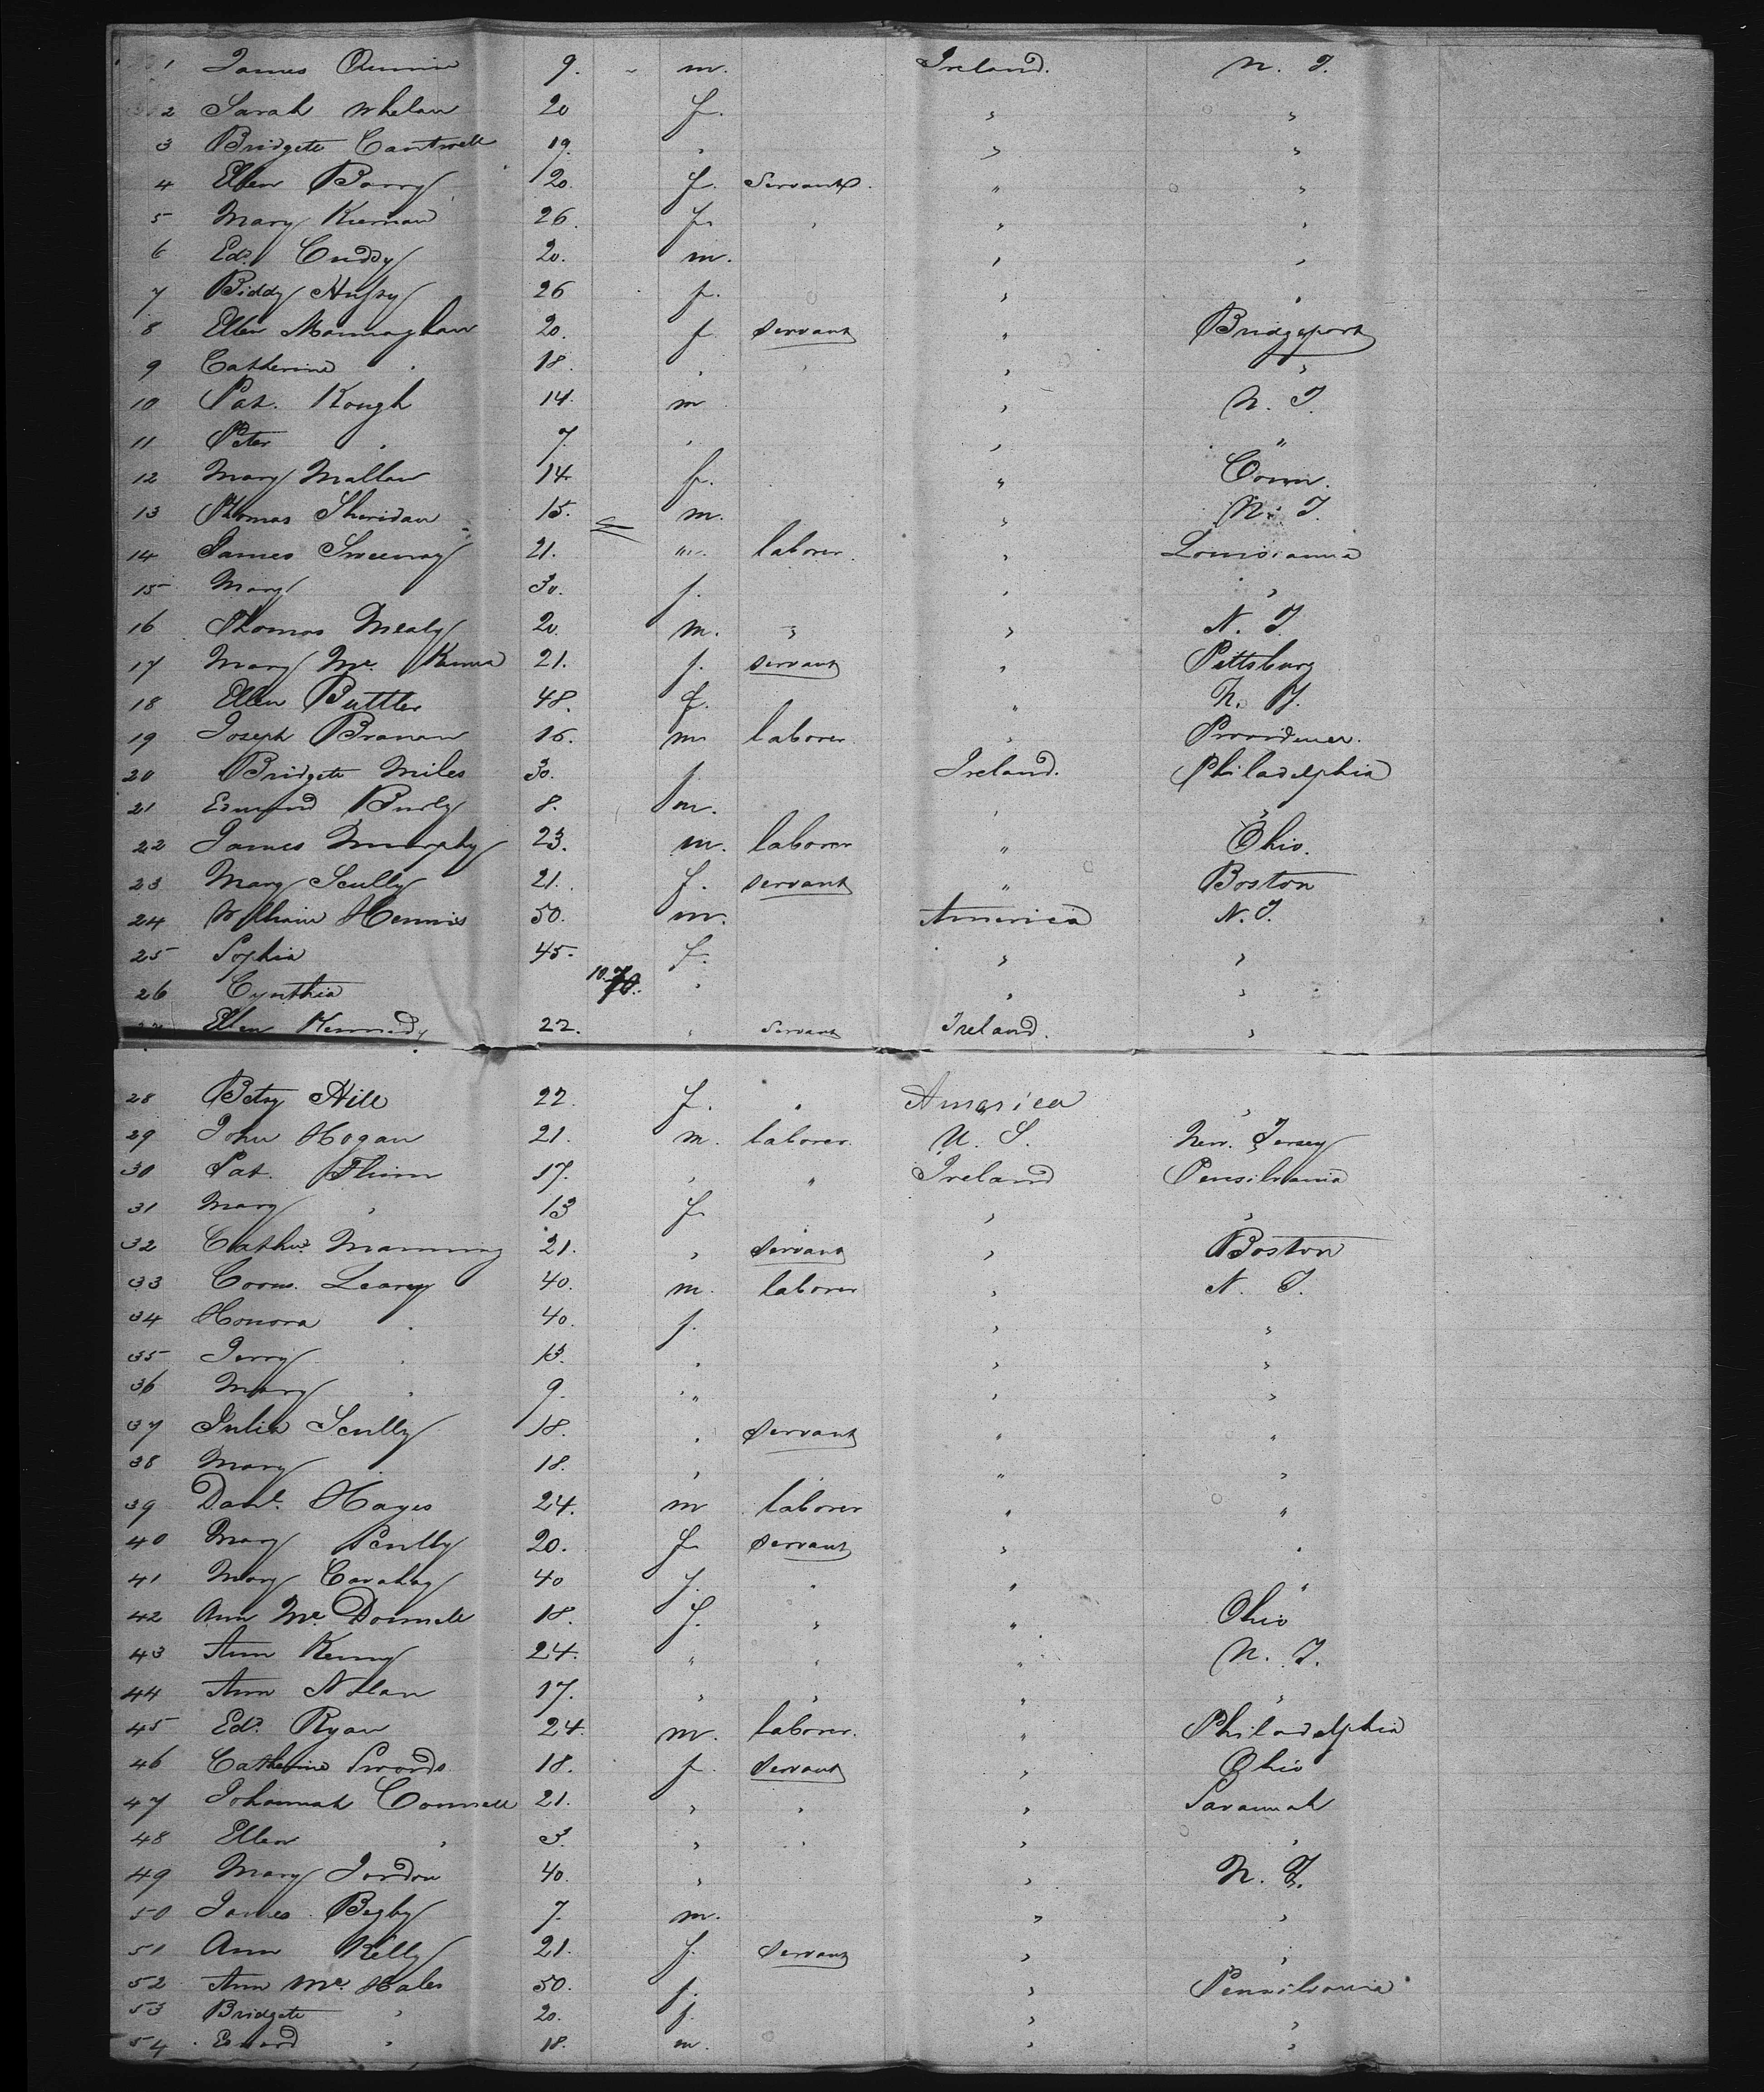 1 James Quinn 9. " m. Ireland. N. Y.
2 Sarah Whelan 20 f. " "
3 Bridgete Cantwell 19. " " "
4 Ellen Barry 20. f. Servant. " "
5 Mary Kiernan 26. f. " " "
6 Edd. Cuddy 20. m. " "
7 Biddy 26 f. " "
8 Ellen Monnaghan 20. f servant " Bridgeport
9 Catherine " 18. " " " "
10 Pat. Kough 14. m " N. Y.
11 Peter " 7. " " "
12 Mary Mallan 14 f. " Conn.
13 Thomas Sheridan 15. m. " N. Y.
14 James Sweeney 21. " laborer. " Louisianna
15 Mary 30. f. " "
16 Thomas Mealy 20. m. " " N. Y.
17 Mary Mc. Kenna 21. f. servant " Pittsburg
18 Ellen Buttler 48. f. " N. Y.
19 Joseph Branan 16. m laborer " Providence.
20 Bridgete Miles 30. f. Ireland. Philadelphia
21 Edmund 8. m. " "
22 James Murphy 23. m. laborer " Ohio.
23 Mary Scully 21. f. servant " Boston
24 William Hennis 50. m. America N. Y.
25 Sophia 45. f. " "
26 Cynthia 10. " " "
27 Ellen Kennedy 22. " Servant Ireland. "
28 Betsy Hill 22. f. " America "
29 John Hogan 21. m. laborer. U. S. New. Jersey
30 Pat. Flinn 17. " " Ireland Pensilvania
31 Mary " 13 f. " "
32 Cathne. Manning 21. " servant " Boston
33 Corns. Leary 40. m. laborer " N. Y.
34 Honora " 40. f. " "
35 Jerry " 13. " " "
36 Mary " 9. " " "
37 Julia Scully 18. " servant " "
38 Mary " 18. " " " "
39 Danl. Hayes 24. m laborer " "
40 Mary Scully 20. f. servant " "
41 Mary 40 f. " " "
42 Ann Mc. Donnell 18. f. " " Ohio
43 Ann Kenny 24. " " " N. Y.
44 Ann Nolan 17. " " " "
45 Edd. Ryan 24. m. laborer. " Philadelphia
46 Catherine Swords 18. f. servant " Ohio
47 Johannah Connell 21. " " " Savannah
48 Ellen " 3. " " " "
49 Mary Jordon 40. " " N. Y.
50 James Begby 7. m. " "
51 Ann Kelly 21. f. servant " "
52 Ann Mc. Hales 50. f. " Pennsilvania
53 Bridgete " 20. f. " "
54 Edward " 18. m. " "